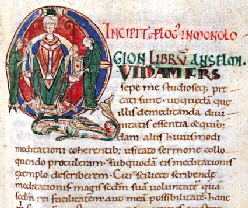 INCIPIT PLOG' IN MONOLO
GION LIBRV ANSELMI
VIDAM FRS
sepe me studioseq; pre
cati sunt ut quedā que
illis de meditanda diui
nitatis essentia & quib;
dam aliis huiusmodi
meditationi coherentib; usitato sermone collo
quendo protuleram, sub quodā eis meditationis
exemplo describerem. Cui' scilicet scribende
meditationis magis sedm suā uoluntatē quā
sedm rei facilitatem aut meā possibilitatē hanc